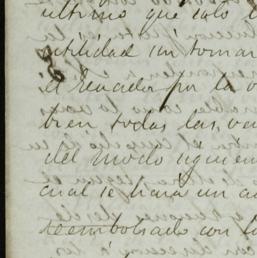 ultimo que solo
utilidad sin tomar
el Senador por la
bien todas las
del modo siguien
cual se hará un
reembolsado con